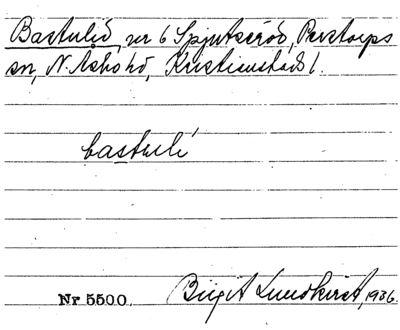 Bastulid, nr 6 Spjutseröd, Perstorps
sn, N. Åsbo hd, Kristianstads l.
bastulí
Nr 5500. Birgit Lundkvist, 1936.